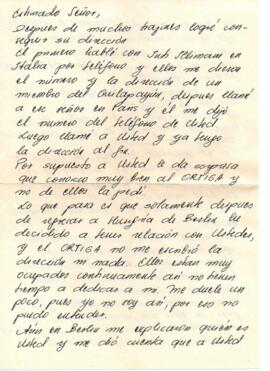 Estimado Señor,
Después de muchos trajines logré con-
seguir su dirección.
el primero hablé con Inti Illimani en
Italia por teléfono y ellos me dieron
el número y la dirección de un
miembro del Quilapayún, después llamé
a ese señor en Paris y él me dijo
el número del teléfono de Usted.
Luego llamé a Usted y ya tengo
la dirección al fin.
Por supuesto a Usted le da sorpresa
que conozco muy bien al ORTIGA y
no de ellos la pedí.
Lo que pasa es que solamente después
de regresar a Hungría de Berlin he
decidido a tener relación con Ustedes,
y el ORTIGA no me escribió la
dirección ni nada. Ellos están muy
ocupados continuamente así no tienen
tiempo a dedicar a mi. Me duele un
poco, pues yo no soy así, por eso no
puedo entender.
Aún en Berlin me explicaron quién es
Usted y me dió cuenta que a Usted